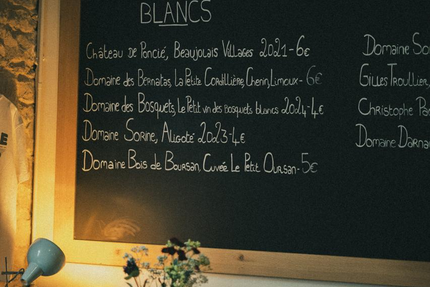 BLANCS
Château de Poncié, Beaujolais Villages 2021-6€
Domaine des Bernatas, La Petite Cordillière, Chenin, Limoux- 6€
Domaine des Bosquets, Le Petit vin des bosquets blancs 2024-4€
Domaine Sorine, Aligoté 2023-4€
Domaine Bois de Boursan Cuvée Le Petit Oursan-5€
Domaine
Gilles Troullier,
Christophe
Domaine
E